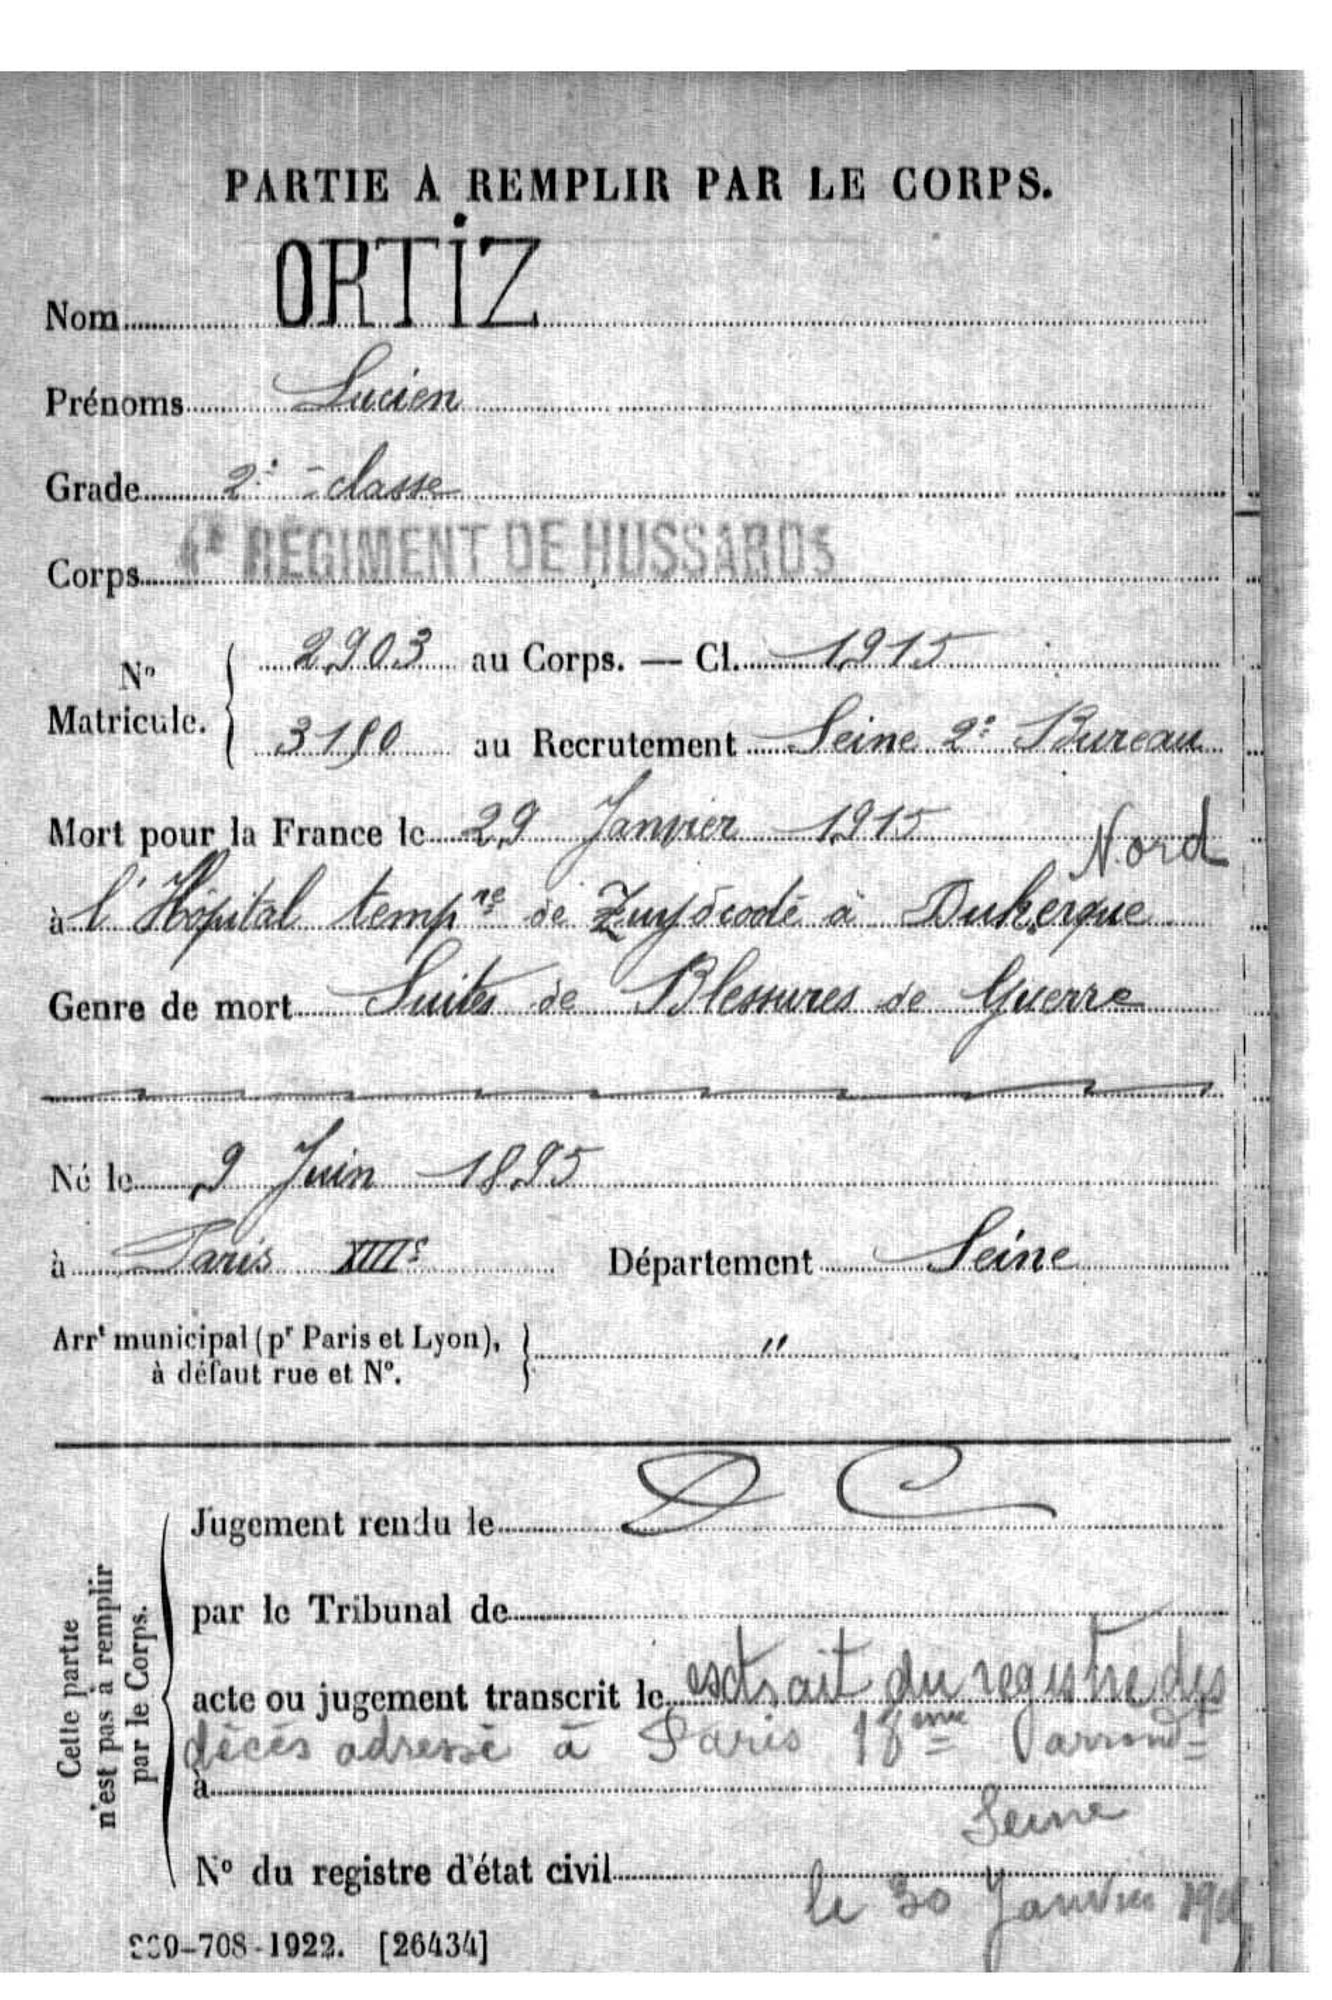 PARTIE A REMPLIR PAR LE CORPS.
Nom ORTIZ
Prénoms Lucien
Grade 2e classe
Corps 4e RÉGIMENT DE HUSSARDS
No Matricule. { 2903 au Corps. — Cl. 1915
3180 au Recrutement Seine 2e Bureau
Mort pour la France le 29 Janvier 1915
Nord
à l'Hôpital tempre de Zuydcode à Dukerque
Genre de mort Suites de Blessures de Guerre
Né le 9 Juin 1895
à Paris XIIIe Département Seine
Arrt municipal (pr Paris et Lyon), à défaut rue et No. } "
Cette partie n'est pas à remplir par le Corps.
Jugement rendu le
par le Tribunal de
acte ou jugement transcrit le extrait du registre des
décès adressé à Paris 18me arrondt
à
Seine
No du registre d'état civil
le 30 Janvier
-708-1922. [26434]